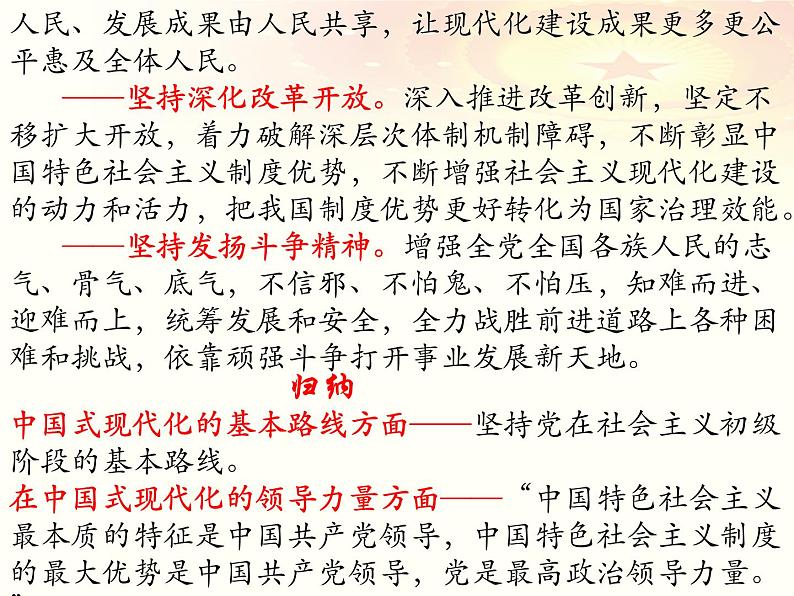 人民、发展成果由人民共享，让现代化建设成果更多更公
平惠及全体人民。
——坚持深化改革开放。深入推进改革创新，坚定不
移扩大开放，着力破解深层次体制机制障碍，不断彰显中
国特色社会主义制度优势，不断增强社会主义现代化建设
的动力和活力，把我国制度优势更好转化为国家治理效能。
——坚持发扬斗争精神。增强全党全国各族人民的志
气、骨气、底气，不信邪、不怕鬼、不怕压，知难而进、
迎难而上，统筹发展和安全，全力战胜前进道路上各种困
难和挑战，依靠顽强斗争打开事业发展新天地。
归纳
中国式现代化的基本路线方面——坚持党在社会主义初级
阶段的基本路线。
在中国式现代化的领导力量方面——“中国特色社会主义
最本质的特征是中国共产党领导，中国特色社会主义制度
的最大优势是中国共产党领导，党是最高政治领导力量。
”